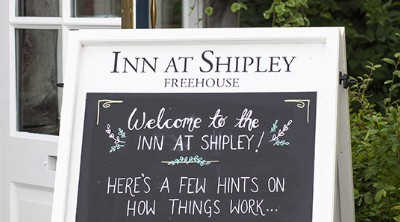 INN AT SHIPLEY
FREEHOUSE
Welcome to the
INN AT SHIPLEY!
HERE'S A FEW HINTS ON
HOW THINGS WORK...